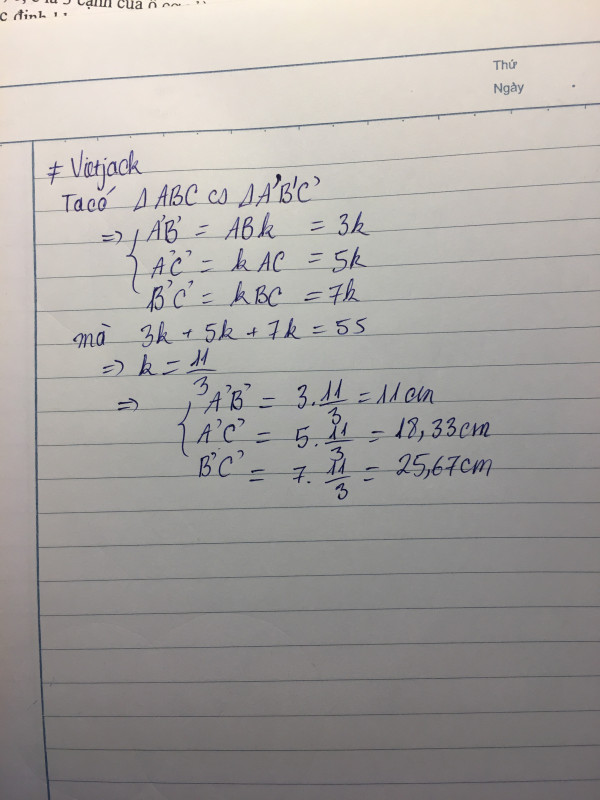 Thứ
Ngày
≠ Vietjack
Ta có ΔABC ∽ ΔA'B'C'
=> { A'B' = ABk = 3k
A'C' = kAC = 5k
B'C' = kBC = 7k
mà 3k + 5k + 7k = 55
=> k = 11/3
=> { A'B' = 3. 11/3 = 11cm
A'C' = 5. 11/3 = 18,33cm
B'C' = 7. 11/3 = 25,67cm